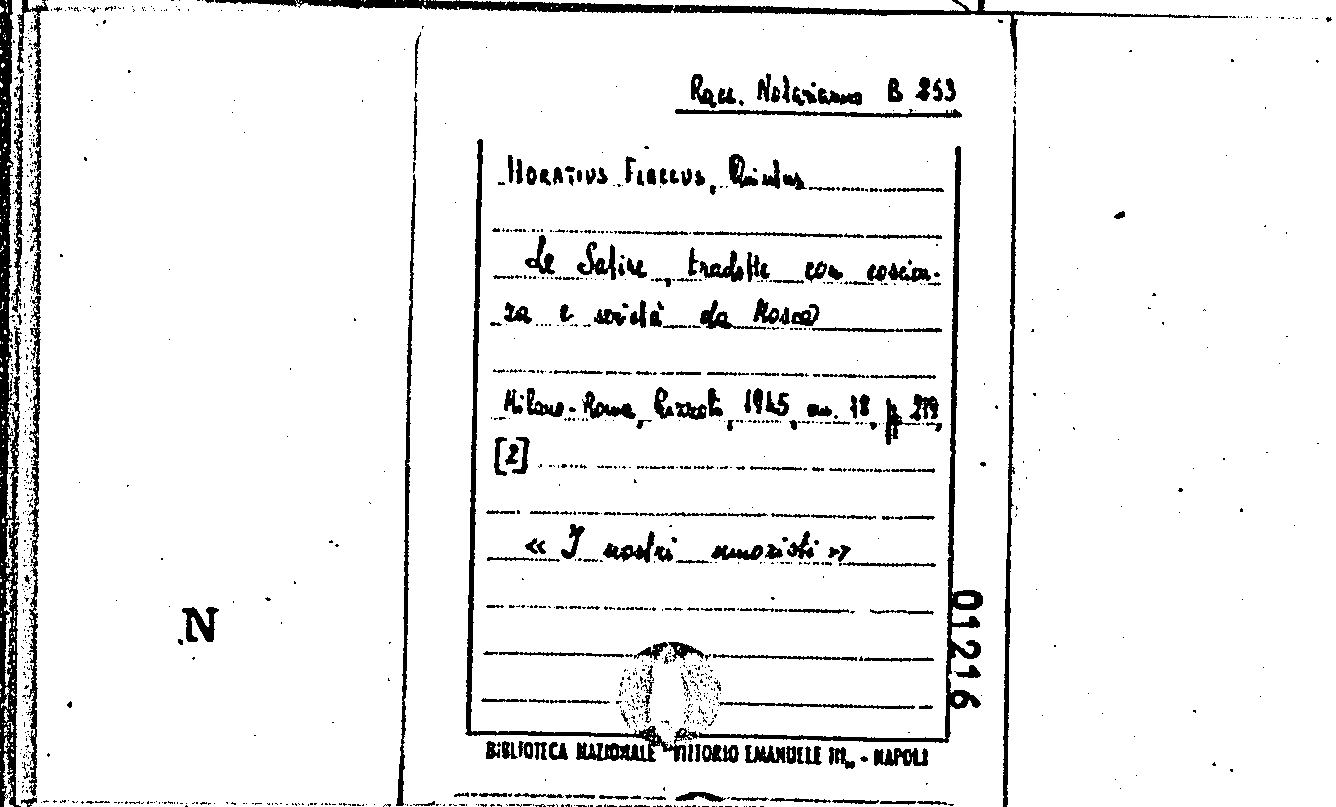 Racc. Notarianno B 253
HORATIUS FLACCUS, Quintus
Le Satire, tradotte con coscien-
za e serietà da Mosca
Milano-Roma, Rizzoli, 1945, in. 18, pp 219,
[2]
« I nostri umoristi »
N
01216
BIBLIOTECA NAZIONALE "VITTORIO EMANUELE III„ - NAPOLI